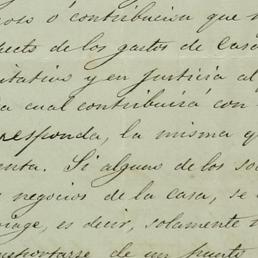 ó contribucion que
pecto de los gastos de casa
itativa y en justicia al
a cual contribuirá con
responda, la misma q
enta. Si alguno de los soc
negocios de la casa, se
iage, es decir, solamente
nsportarse de un puerto